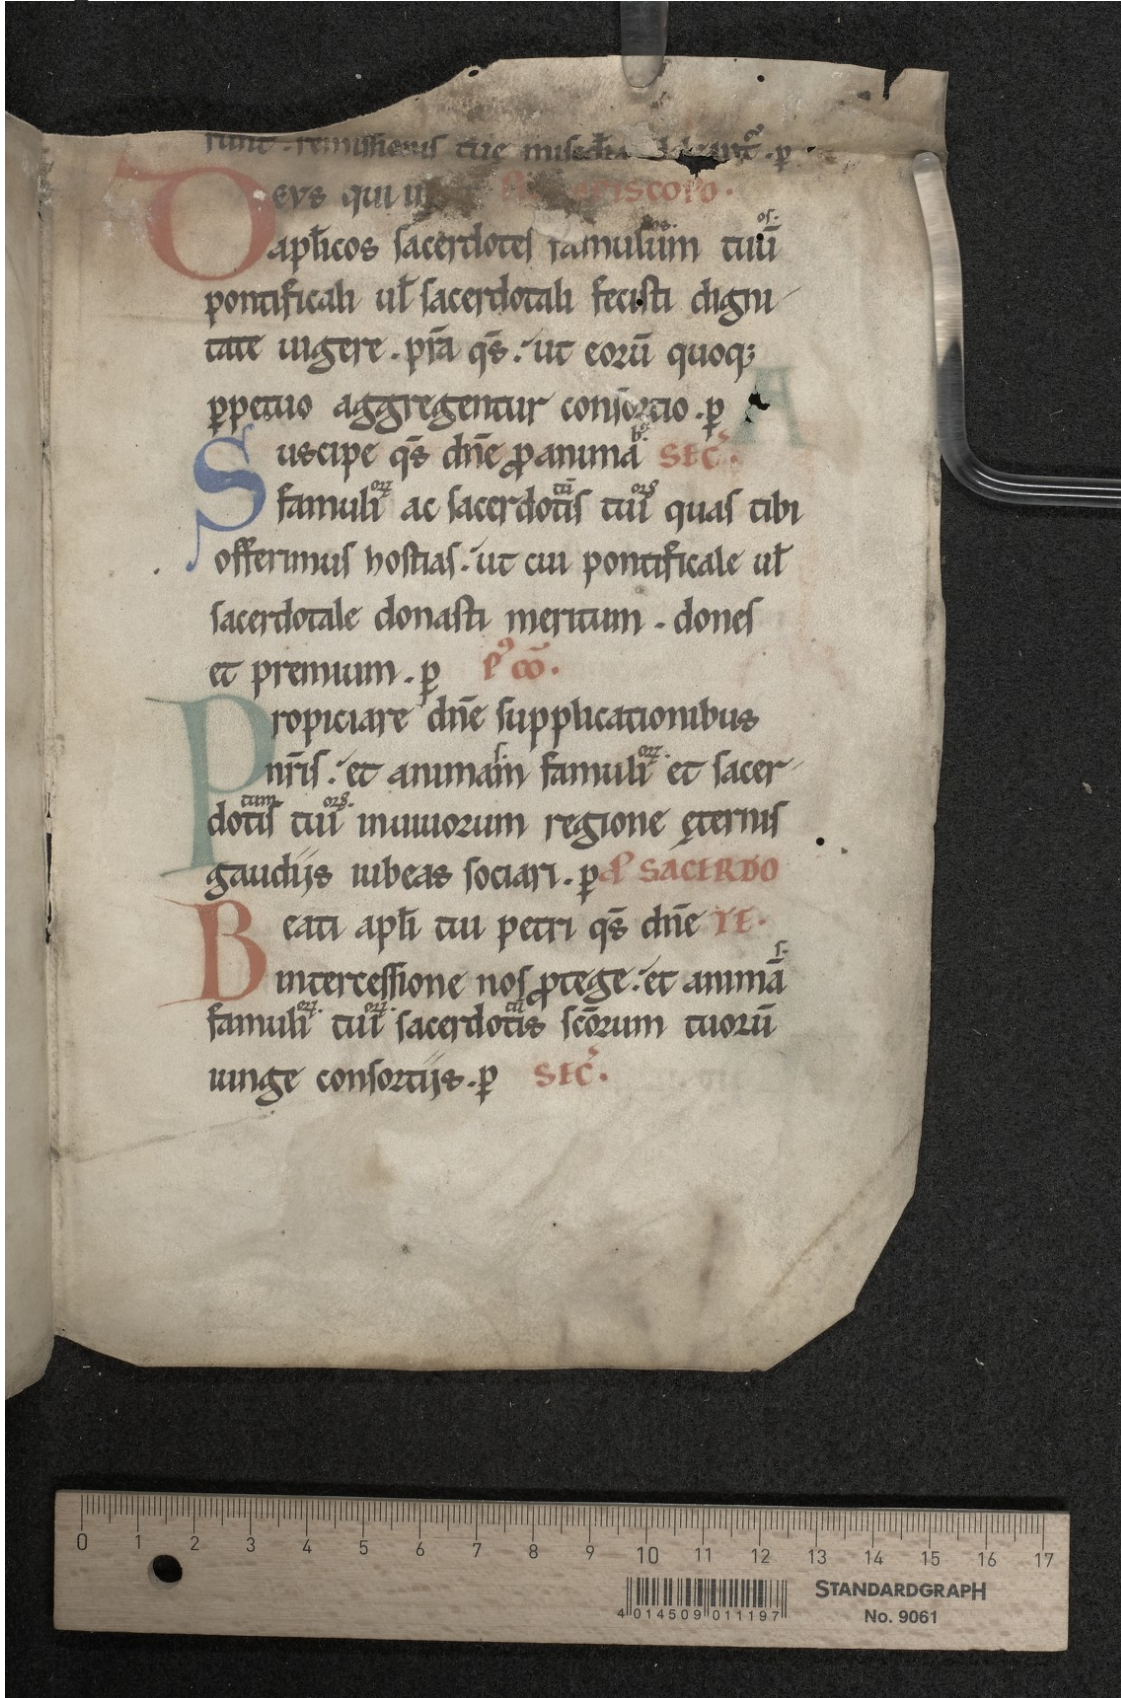 sunt . remissionis tuę mis̄cd̄ia p̱
Deus qui EPISCOPO .
apl̄icos sacerdotes famulum os. tuū os.
pontificali ul̄ sacerdotali fecisti digni
tate uigere . pr̄a qs̄ . ut eorū quoqꝫ
ꝑpetuo aggregentur consortio . ꝑ
Suscipe qs̄ dn̄e ꝓ animā bꝰ. SEC̄ .
famuli oꝝ ac sacerdotis tū tui oꝝ quas tibi
offerimus hostias . ut cui pontificale ul̄
sacerdotale donasti meritum . dones
et premium . ꝑ Pꝰ CŌ .
Propiciare dn̄e supplicationibus
nr̄is . et animam s. famuli oꝝ. et sacer
dotis tum tui oꝝ. inuiuorum regione ęternis
gaudiis iubeas sociari . ꝑ SACERDO
Beati apl̄i tui petri qs̄ dn̄e TE .
intercessione nos ꝓtege . et animā s.
famuli oꝝ. tui oꝝ. sacerdotis tū sc̄orum tuorū
iunge consortiis . ꝑ SEC̄ .
0 1 2 3 4 5 6 7 8 9 10 11 12 13 14 15 16 17
STANDARDGRAPH
No. 9061
4 014509 011197